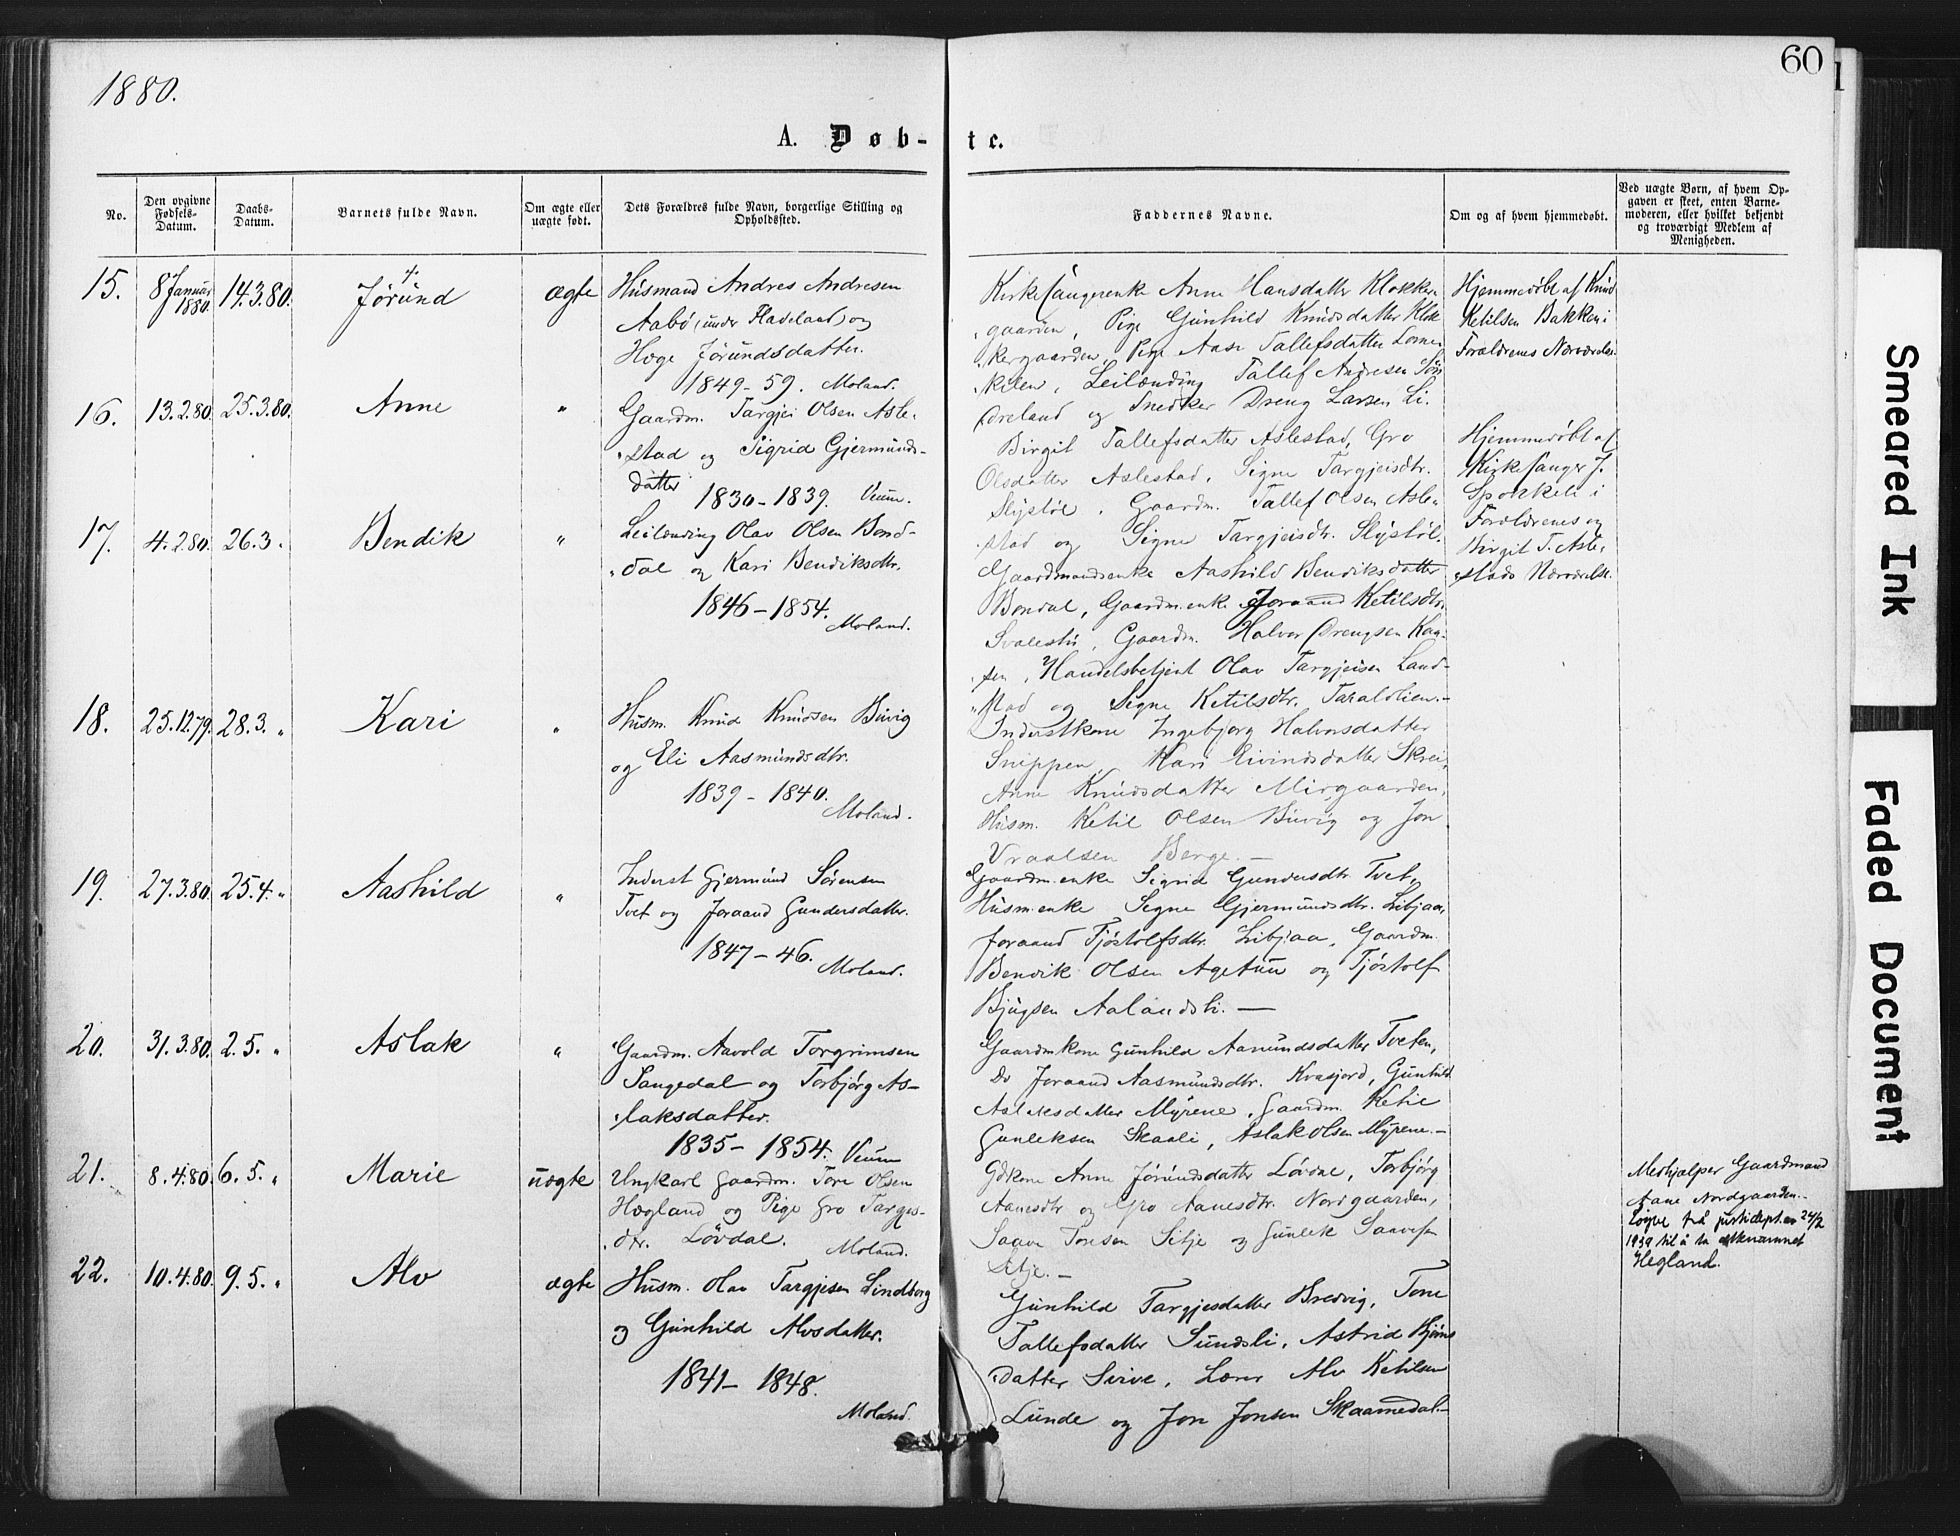 60
1
1880.
A. Døb-
te.
No.
Den opgivne Fødsels-Datum.
Daabs-Datum.
Barnets fulde Navn.
Om ægte eller uægte født.
Dets Forældres fulde Navn, borgerlige Stilling og Opholdssted.
Faddernes Navne.
Om og af hvem hjemmedøbt.
Ved uægte Børn, af hvem Opgaven er skeet, enten Barnemoderen, eller hvilket bekjendt og troværdigt Medlem af Menigheden.
15.
8 Januar 1880.
14.3.80.
Jørund
ægte
Husmand Andres Andresen
Aabø (under Fladeland) og
Hæge Jørundsdatter.
1849-59. Moland.
Kirkesangerenke Anne Hansdatter Klokker-
gaarden, Pige Gunhild Knudsdatter Klok-
kergaarden, Pige Aase Tallefsdatter
Leilænding Tallef Andresen
og Snedker Dreng Larsen Li.
Hjemmedøbt af Knud
Ketilsen Bakken i
Forældrenes Nærværelse.
16.
13.2.80.
25.3.80.
Anne
"
Gaardm. Targjei Olsen Asle-
stad og Sigrid Gjermunds-
datter
1830-1839. Veum.
Birgit Tallefsdatter Aslestad, Gro
Olsdatter Aslestad, Signe Targjeisdtr.
Slystøl, Gaardm. Tallef Olsen Asle-
stad og Signe Targjeisdtr. Slystøl.
Hjemmedøbt af
Kirkesanger J.
Spokkeli i
Forældrenes og
Birgit T. Asle-
stads Nærværelse.
17.
4.2.80.
26.3. "
Bendik
"
Leilænding Olav Olsen Bond-
dal og Kari Bendiksdtr.
1846-1854.
Moland.
Gaardmandsenke Aashild Bendiksdatter
Bondal, Gaardm.enke Joraand Ketilsdtr.
Svalestu, Gaardm. Halvor Drengsen Kaa-
sen, Handelsbetjent Olav Targjeisen Land-
stad og Signe Ketilsdtr. Taraldlien.-
18.
25.12.79.
28.3. "
Kari
"
Husm. Knud Knudsen Buvig
og Eli Aasmundsdtr.
1839-1840.
Moland.
Inderstkone Ingebjorg Halvorsdatter
Snippen, Kari Eivindsdatter Skrei,
Anne Knudsdatter Midgaarden,
Husm. Ketil Olsen Buvig og Jon
Vraalsen Berge.-
19.
27.3.80.
25.4. "
Aashild
"
Inderst Gjermund Sørensen
Tvet og Joraand Gundersdatter.
1847-46.
Moland.
Gaardm.enke Sigrid Gundersdtr. Tvet,
Husm.enke Signe Gjermundsdtr. Libjaa,
Joraand Tjøstolfsdtr. Libjaa, Gaardm.
Bendik Olsen Agetun og Tjøstolf
Bjugsen Aalandsli.-
20.
31.3.80.
2.5. "
Aslak
"
Gaardm. Aavold Torgrimsen
Sangedal og Torbjørg As-
laksdatter.
1835-1854. Veum
Gaardmkone Gunhild Aanundsdatter Tveten,
Do Joraand Aasmundsdtr. Kvasjord, Gunhild
Aslaksdatter Myrene, Gaardm. Ketil
Gunleksen Skaali, Aslak Olsen Myrene.-
21.
8.4.80.
6.5. "
Marie
uægte
Ungkarl Gaardm. Tore Olsen
Hægland og Pige Gro Targes-
dtr. Løvdal.
Moland.
Gdkone Anne Jørundsdatter Løvdal, Torbjørg
Aanesdtr og Gro Aanesdtr. Nordgaarden,
Saave Toresen Sitje og Gunlek Saavesen
Sitje.-
Medhjælper Gaardmand
Aane Nordgaarden.-
Løyve frå justisdept. av 24/2
1939 til å ta ættenamnet
Hegland.
22.
10.4.80.
9.5. "
Alv
ægte
Husm. Olav Targjesen Lindborg
og Gunhild Alvsdatter.
1841-1848.
Moland.
Gunhild Targjesdatter Bredvig, Tone
Tallefsdatter Sundsli, Astrid Bjøns
datter Sirve, Lærer Alv Ketilsen
Lunde og Jon Jonsen Skaamedal.-
Smeared Ink
Faded Document